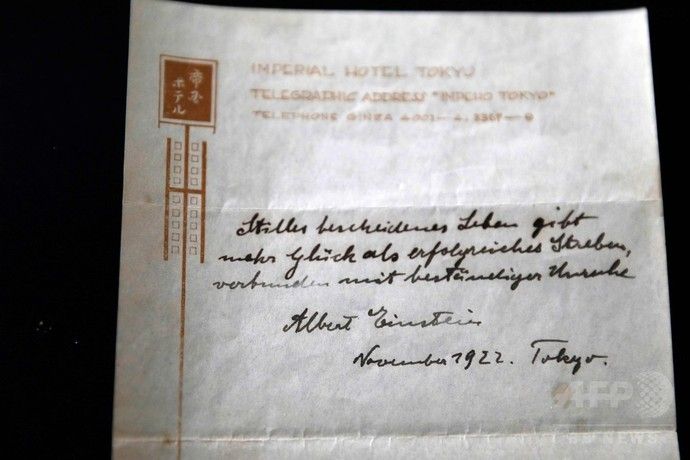 帝國
ホテル
IMPERIAL HOTEL TOKYO
TELEGRAPHIC ADDRESS "IMPEHO TOKYO"
TELEPHONE GINZA 4001-4, 3367-9
Stilles bescheidenes Leben gibt
mehr Glück als erfolgreiches Streben,
verbunden mit beständiger Unruhe
Albert Einstein
November 1922. Tokyo.
AFP
BB NEWS